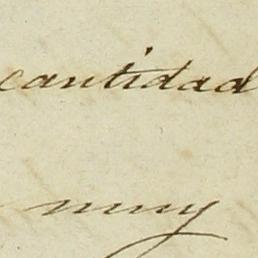 cantidad
muy